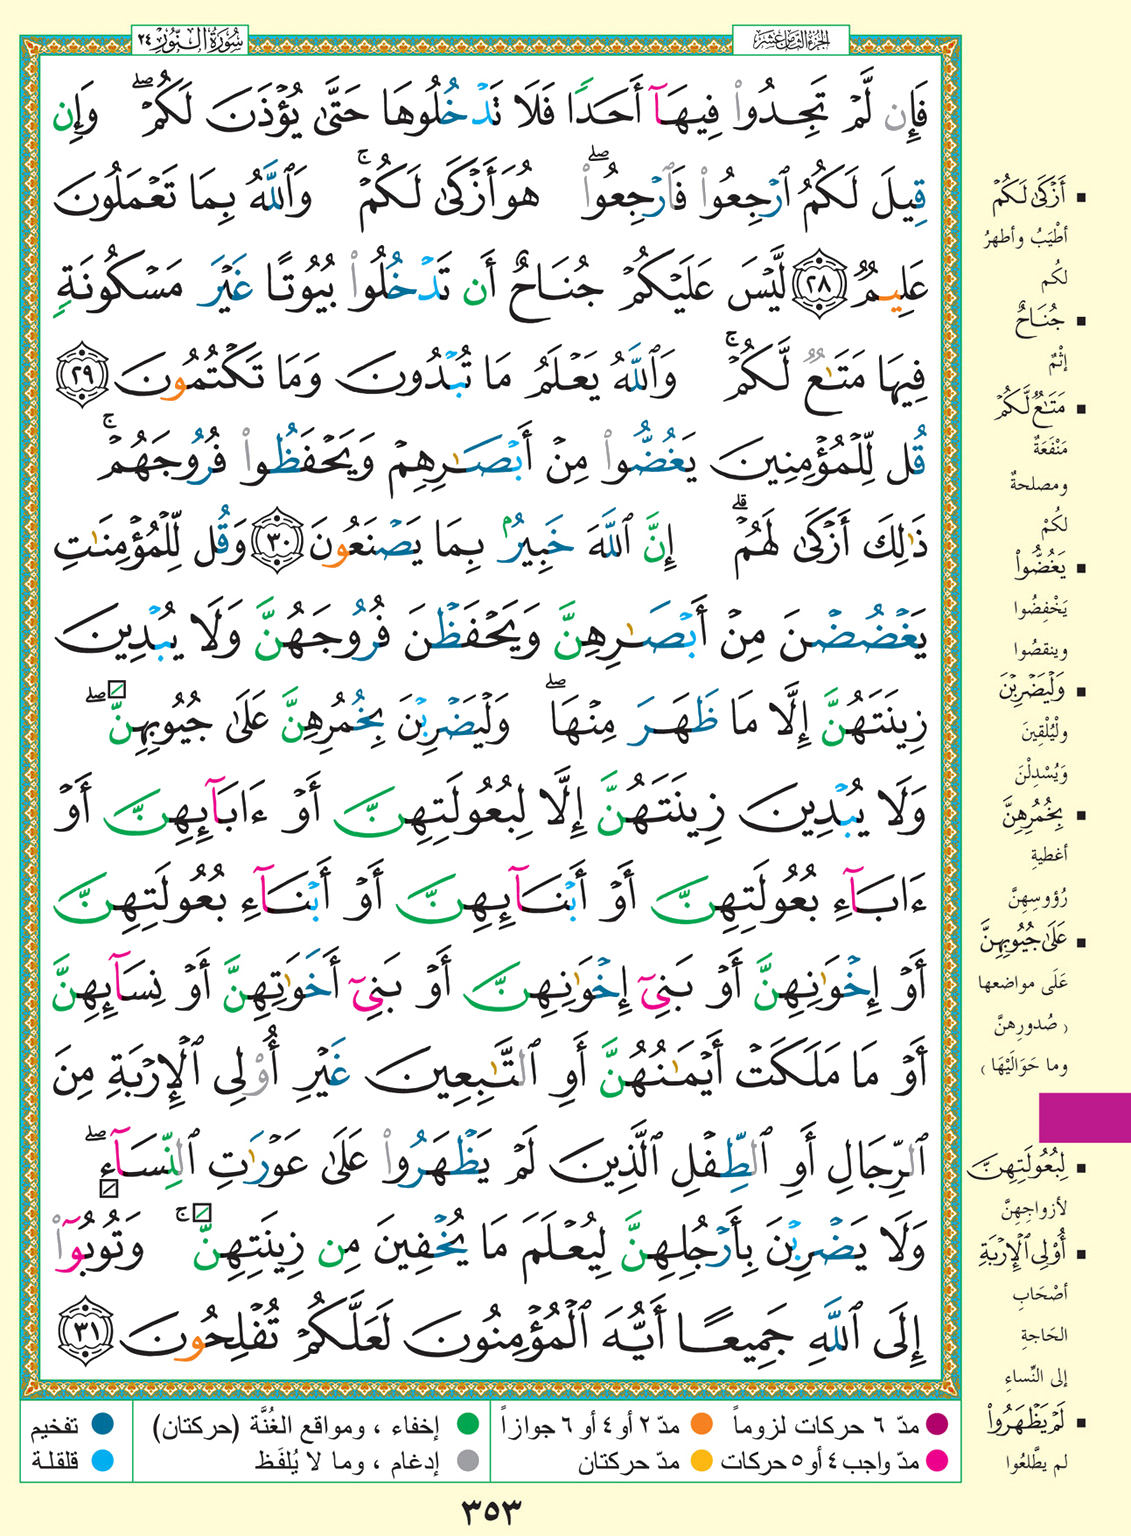 سُورَةُ النُّورِ ٢٤
الجزء الثامن عشر
فَإِن لَّمْ تَجِدُوا۟ فِيهَآ أَحَدًا فَلَا تَدْخُلُوهَا حَتَّىٰ يُؤْذَنَ لَكُمْ ۖ وَإِن
قِيلَ لَكُمُ ٱرْجِعُوا۟ فَٱرْجِعُوا۟ ۖ هُوَ أَزْكَىٰ لَكُمْ ۚ وَٱللَّهُ بِمَا تَعْمَلُونَ
عَلِيمٌ ٢٨ لَّيْسَ عَلَيْكُمْ جُنَاحٌ أَن تَدْخُلُوا۟ بُيُوتًا غَيْرَ مَسْكُونَةٍ
فِيهَا مَتَـٰعٌ لَّكُمْ ۚ وَٱللَّهُ يَعْلَمُ مَا تُبْدُونَ وَمَا تَكْتُمُونَ ٢٩
قُل لِّلْمُؤْمِنِينَ يَغُضُّوا۟ مِنْ أَبْصَـٰرِهِمْ وَيَحْفَظُوا۟ فُرُوجَهُمْ ۚ
ذَٰلِكَ أَزْكَىٰ لَهُمْ ۗ إِنَّ ٱللَّهَ خَبِيرٌۢ بِمَا يَصْنَعُونَ ٣٠ وَقُل لِّلْمُؤْمِنَـٰتِ
يَغْضُضْنَ مِنْ أَبْصَـٰرِهِنَّ وَيَحْفَظْنَ فُرُوجَهُنَّ وَلَا يُبْدِينَ
زِينَتَهُنَّ إِلَّا مَا ظَهَرَ مِنْهَا ۖ وَلْيَضْرِبْنَ بِخُمُرِهِنَّ عَلَىٰ جُيُوبِهِنَّ ۖ
وَلَا يُبْدِينَ زِينَتَهُنَّ إِلَّا لِبُعُولَتِهِنَّ أَوْ ءَابَآئِهِنَّ أَوْ
ءَابَآءِ بُعُولَتِهِنَّ أَوْ أَبْنَآئِهِنَّ أَوْ أَبْنَآءِ بُعُولَتِهِنَّ
أَوْ إِخْوَٰنِهِنَّ أَوْ بَنِىٓ إِخْوَٰنِهِنَّ أَوْ بَنِىٓ أَخَوَٰتِهِنَّ أَوْ نِسَآئِهِنَّ
أَوْ مَا مَلَكَتْ أَيْمَـٰنُهُنَّ أَوِ ٱلتَّـٰبِعِينَ غَيْرِ أُو۟لِى ٱلْإِرْبَةِ مِنَ
ٱلرِّجَالِ أَوِ ٱلطِّفْلِ ٱلَّذِينَ لَمْ يَظْهَرُوا۟ عَلَىٰ عَوْرَٰتِ ٱلنِّسَآءِ ۖ
وَلَا يَضْرِبْنَ بِأَرْجُلِهِنَّ لِيُعْلَمَ مَا يُخْفِينَ مِن زِينَتِهِنَّ ۚ وَتُوبُوٓا۟
إِلَى ٱللَّهِ جَمِيعًا أَيُّهَ ٱلْمُؤْمِنُونَ لَعَلَّكُمْ تُفْلِحُونَ ٣١
أَزْكَىٰ لَكُمْ
أطْيَبُ وأطهرُ
لكُم
جُنَاحٌ
إثْمٌ
مَتَـٰعٌ لَّكُمْ
مَنْفَعَةٌ
ومصلحةٌ
لكُمْ
يَغُضُّوا۟
يَخْفِضُوا
وينقصُوا
وَلْيَضْرِبْنَ
ولْيُلْقِينَ
وَيُسْدِلْنَ
بِخُمُرِهِنَّ
أغطيةِ
رُؤوسِهِنَّ
عَلَىٰ جُيُوبِهِنَّ
عَلَى مواضعها
( صُدورِهِنَّ
وما حَوَالَيْهَا )
لِبُعُولَتِهِنَّ
لأزواجِهِنَّ
أُو۟لِى ٱلْإِرْبَةِ
أصْحَابِ
الحَاجةِ
إلى النِّساءِ
لَمْ يَظْهَرُوا۟
لم يطَّلعُوا
مدّ ٦ حركات لزوماً
مدّ ٢ أو ٤ أو ٦ جوازاً
إخفاء ، ومواقع الغُنَّة (حركتان)
تفخيم
مدّ واجب ٤ أو ٥ حركات
مدّ حركتان
إدغام ، وما لا يُلفَظ
قلقلة
٣٥٣